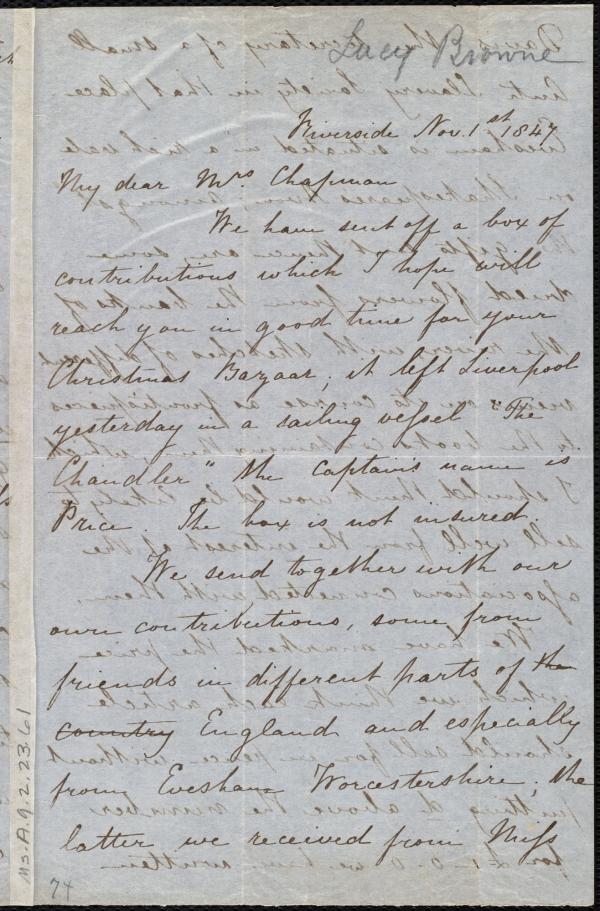 Lucy Browne
Riverside Nov. 1st 1847
My dear Mrs Chapman
We have sent off a box of
contributions which I hope will
reach you in good time for your
Christmas Bazaar; it left Liverpool
yesterday in a sailing vessel "The
Chandler" the Captain's name is
Price. The box is not insured.
We send together with our
own contributions, some from
friends in different parts of the
country England and especially
from Evesham Worcestershire, the
latter we received from Miss
Ms.A.9.2.23.61
74